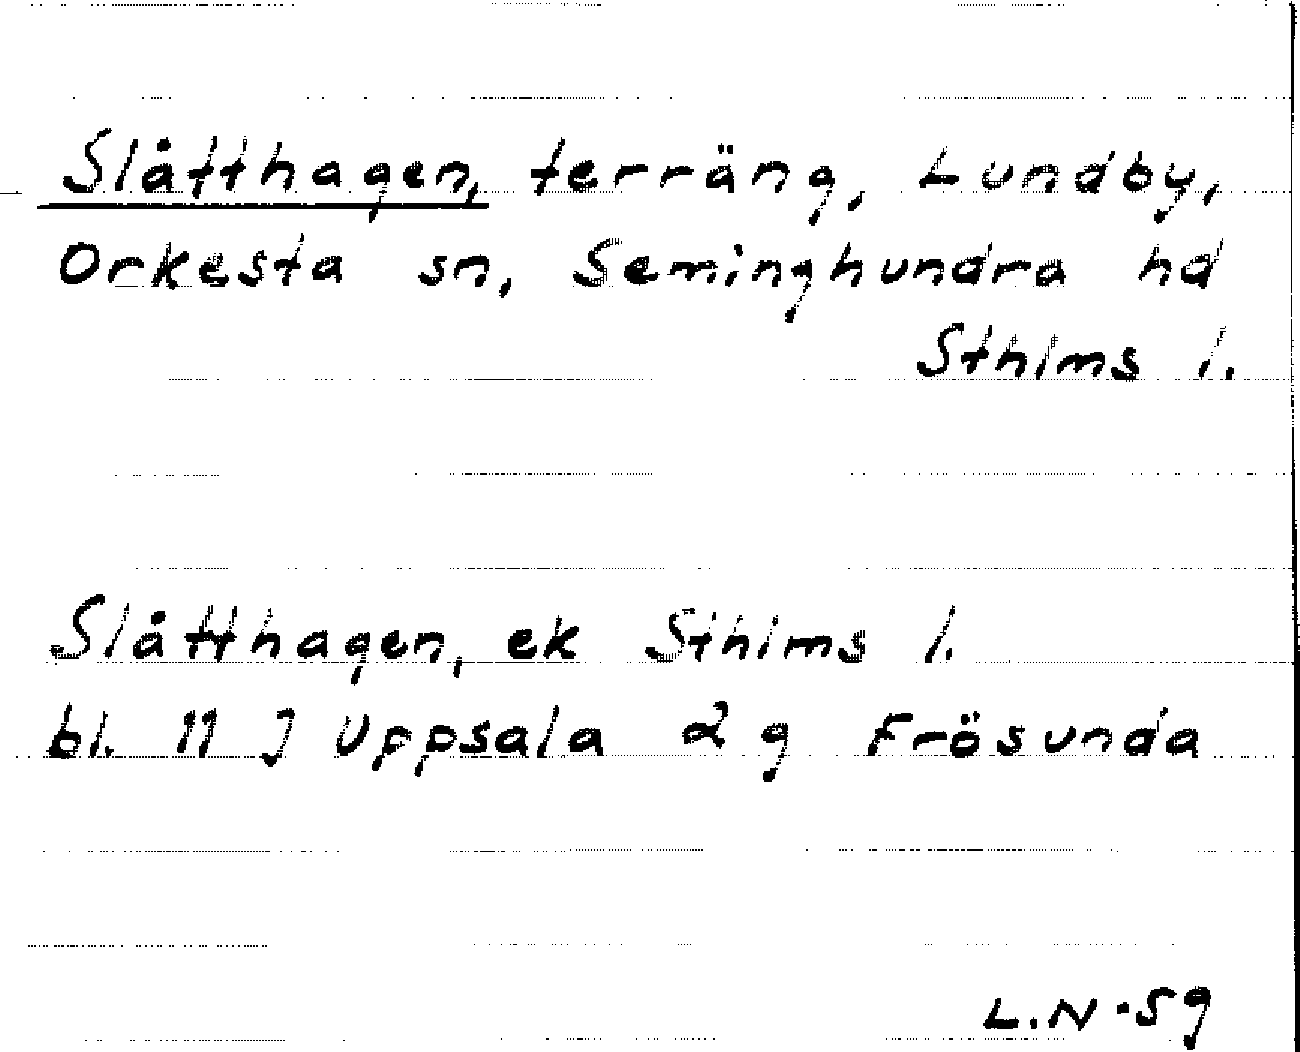 Slåtthagen, terräng, Lundby,
Orkesta sn, Seminghundra hd
Sthlms l.
Slåtthagen, ek Sthlms l.
bl. 11 J Uppsala 2 g Frösunda
L.N-59